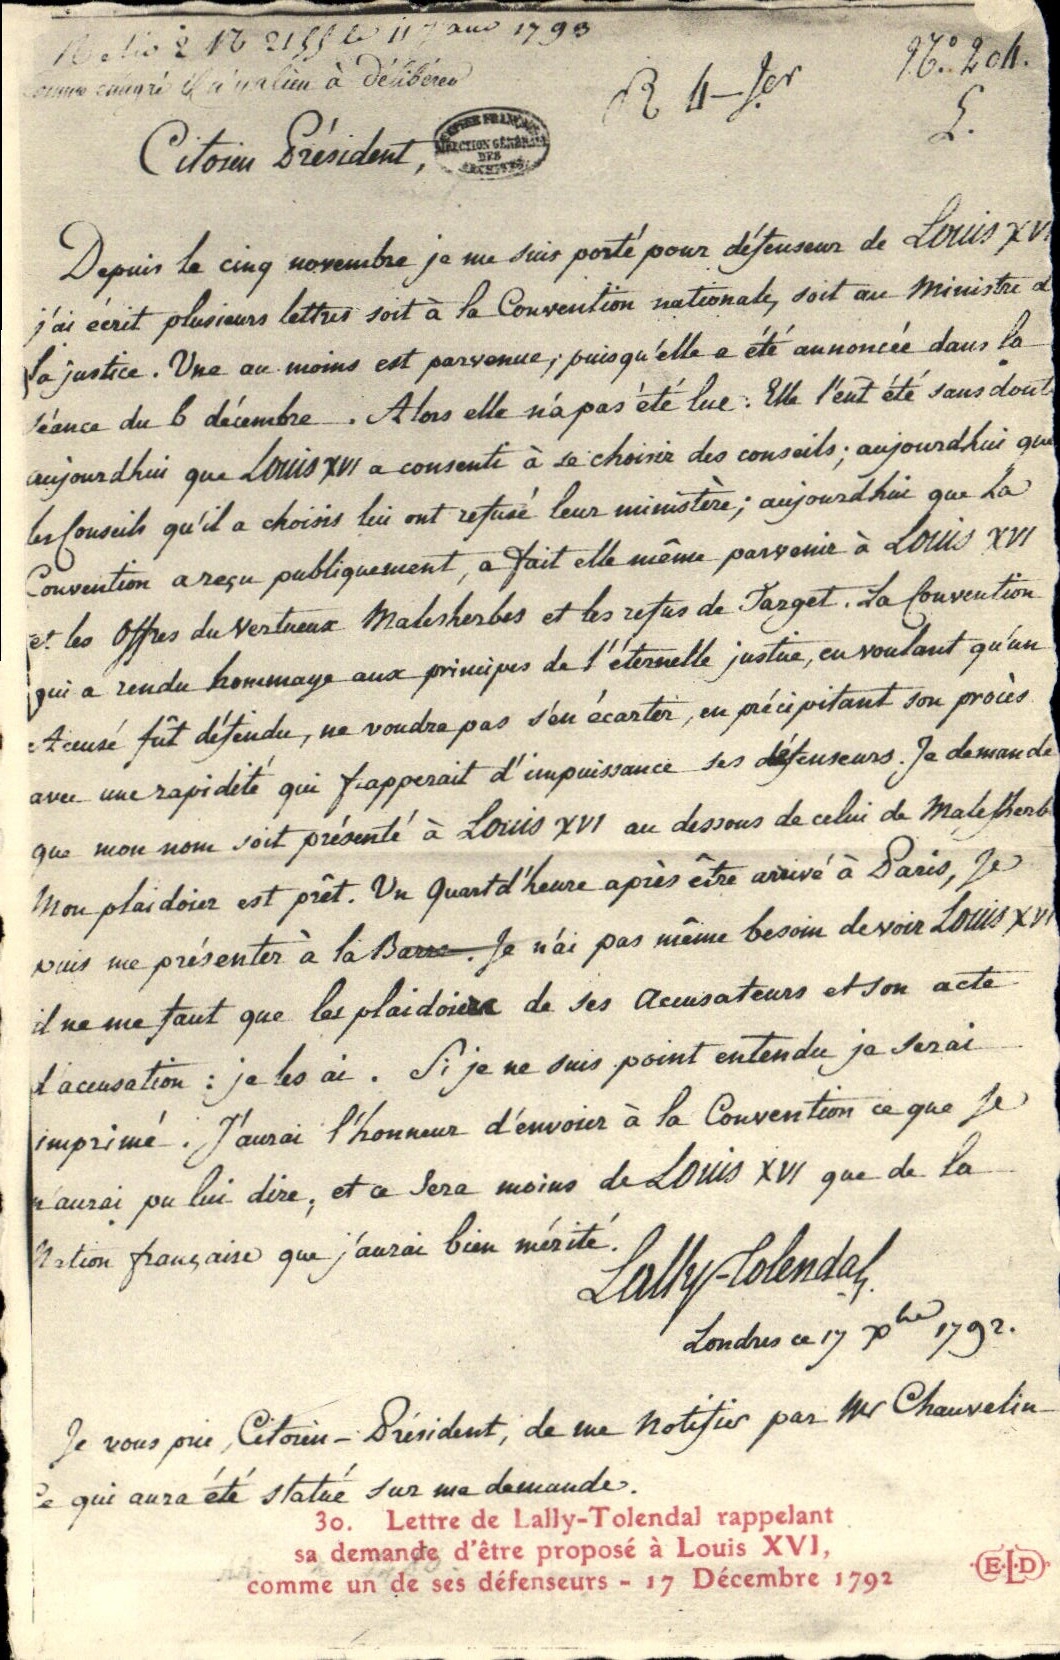 11 Janv 1793
N.° 204.
comme émigré il n'y a lieu à délibérer
R 4 – Jer
L.
Citoien Président,
EMPIRE FRANÇAIS
DIRECTION GÉNÉRALE
DES
ARCHIVES
Depuis le cinq novembre je me suis porté pour défenseur de Louis XVI
j'ai écrit plusieurs lettres soit à la Convention nationale, soit au Ministre d
la justice. Une au moins est parvenue, puisqu'elle a été annoncée dans la
séance du 6 décembre. Alors elle n'a pas été lue. Elle l'eût été sans dout
aujourdhui que Louis XVI a consenti à se choisir des conseils; aujourdhui que
les Conseils qu'il a choisis lui ont refusé leur ministère; aujourdhui que La
Convention a reçu publiquement, a fait elle même parvenir à Louis XVI
et les Offres du vertueux Malesherbes et les refus de Target. La Convention
qui a rendu hommage aux principes de l'éternelle justice, en voulant qu'un
Accusé fût défendu, ne voudra pas s'en écarter, en précipitant son procès
avec une rapidité qui frapperait d'impuissance ses défenseurs. Je demande
que mon nom soit présenté à Louis XVI au dessous de celui de Malesherb
Mon plaidoier est prêt. Un quart d'heure après être arrivé à Paris, Je
puis me présenter à la Barre. Je n'ai pas même besoin de voir Louis XVI
il ne me faut que les plaidoiers de ses accusateurs et son acte
d'accusation: je les ai. Si je ne suis point entendu je serai
imprimé. J'aurai l'honneur d'envoier à la Convention ce que Je
n'aurai pu lui dire, et ce sera moins de Louis XVI que de la
Nation française que j'aurai bien mérité.
Lally-Tolendal.
Londres ce 17 Xbre 1792.
Je vous prie, Citoien-Président, de me notifier par Mr Chauvelin
Ce qui aura été statué sur ma demande.
30. Lettre de Lally-Tolendal rappelant
sa demande d'être proposé à Louis XVI,
comme un de ses défenseurs - 17 Décembre 1792
E·L·D